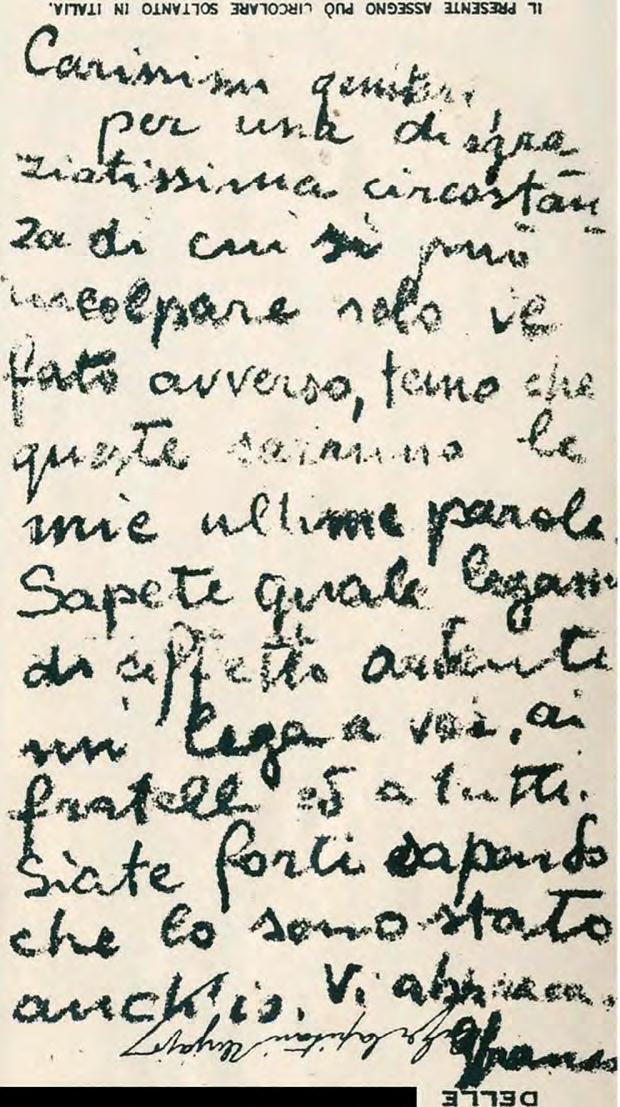 IL PRESENTE ASSEGNO PUÒ CIRCOLARE SOLTANTO IN ITALIA.
Carissimi genitori,
per una disgra
ziatissima circostan
za di cui si può
incolpare solo il
fato avverso, temo che
queste saranno le
mie ultime parole.
Sapete quale legame
di affetto ardente
mi lega a voi, ai
fratelli ed a tutti.
Siate forti sapendo
che lo sono stato
anch'io. Vi abbraccia.
Franco
DELLE